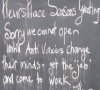 Seasons Greetings
Sorry we cannot open
until Anti Vaxers change
their minds - get the job
and come to work